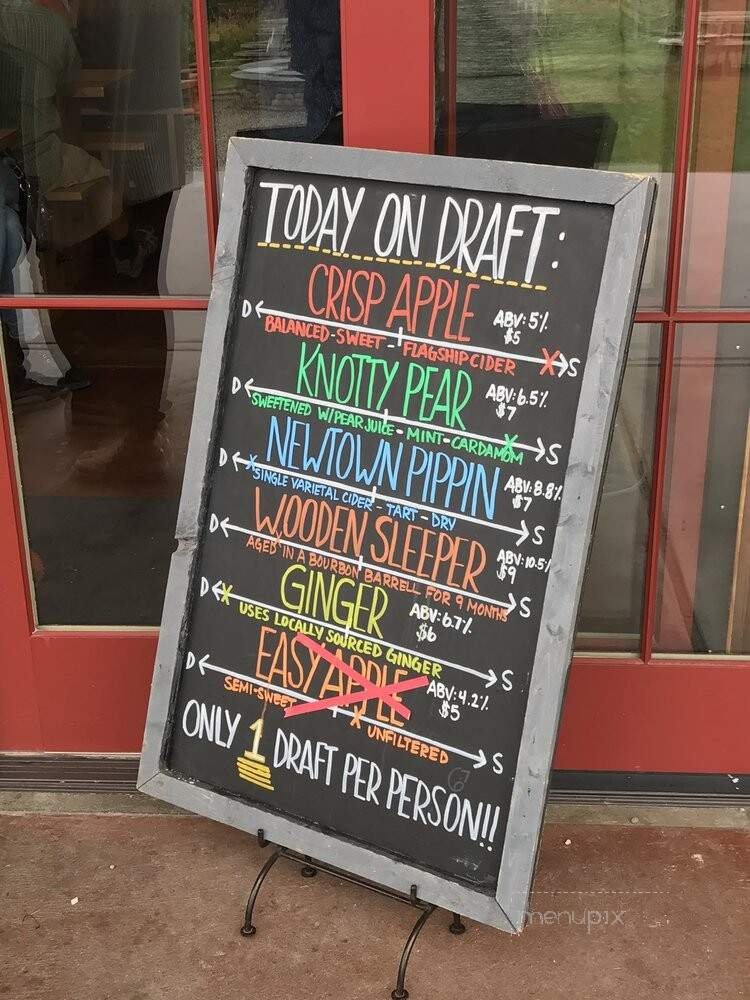 TODAY ON DRAFT:
CRISP APPLE
ABV: 5%
$5
D S
BALANCED-SWEET - FLAGSHIP CIDER
KNOTTY PEAR
ABV: 6.5%
$7
D S
SWEETENED W/PEAR JUICE - MINT-CARDAMOM
NEWTOWN PIPPIN
ABV: 8.8%
$7
D S
SINGLE VARIETAL CIDER - TART - DRY
WOODEN SLEEPER
ABV: 10.5%
$9
D S
AGED IN A BOURBON BARRELL FOR 9 MONTHS
GINGER
ABV: 6.7%
$6
D S
USES LOCALLY SOURCED GINGER
EASY APPLE
ABV: 4.2%
$5
D S
SEMI-SWEET UNFILTERED
ONLY 1 DRAFT PER PERSON!!
menupix